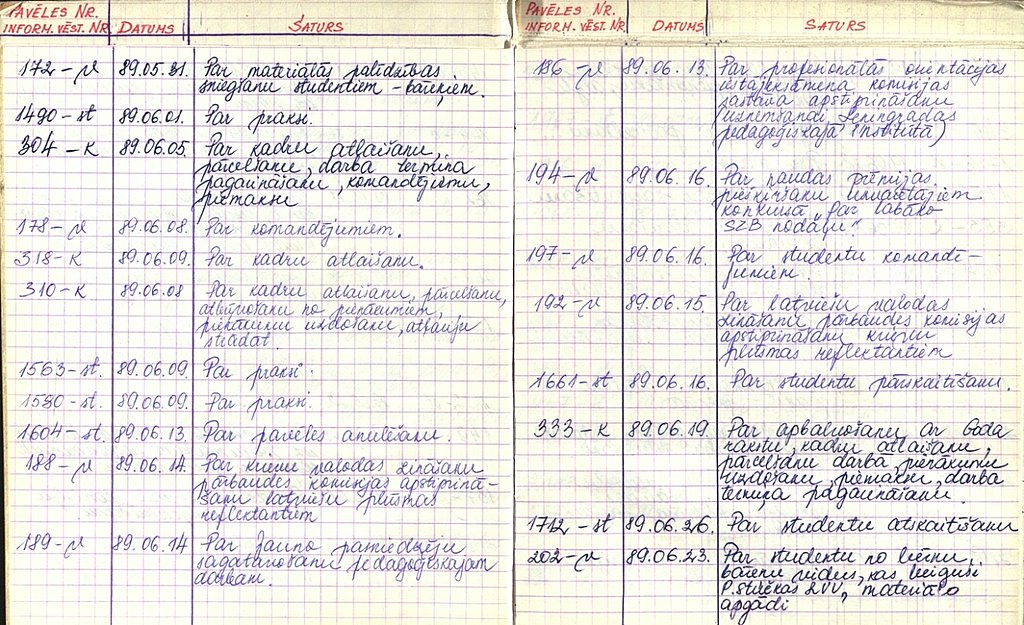 PAVĒLES NR.
INFORM. VĒST. NR. DATUMS SATURS
172-v 89.05.31. Par materiālās palīdzības
sniegšanu studentiem-bāreņiem.
1490-st 89.06.01. Par praksi.
304-K 89.06.05. Par kadru atlaišanu,
pārcelšanu, darba termiņa
pagarināšanu, komandējumu,
piemaksu
178-v 89.06.08. Par komandējumiem.
318-K 89.06.09. Par kadru atlaišanu.
310-K 89.06.08 Par kadru atlaišanu, pārcelšanu,
atbrīvošanu no pienākumiem,
pienākumu uzdošanu, atļauju
strādāt.
1563-st. 89.06.09. Par praksi.
1530-st. 89.06.09. Par praksi.
1604-st. 89.06.13. Par pavēles anulēšanu.
188-v 89.06.14. Par krievu valodas zināšanu
pārbaudes komisijas apstiprinā-
šanu latviešu plūsmas
reflektantiem
189-v 89.06.14 Par Jauno pasniedzēju
sagatavošanu pedagoģiskajam
darbam.
PAVĒLES NR.
INFORM. VĒST. NR DATUMS SATURS
186-v 89.06.13. Par profesionālās orientācijas
iestājeksāmena komisijas
sastāva apstiprināšanu
(uzņemšanai Ļeņingradas
pedagoģiskajā institūtā)
194-v 89.06.16. Par naudas prēmijas
piešķiršanu uzvarētājiem
konkursā "Par labāko
SZB nodaļu"
197-v 89.06.16. Par studentu komandē-
jumiem.
192-v 89.06.15. Par latviešu valodas
zināšanu pārbaudes komisijas
apstiprināšanu krievu
plūsmas reflektantiem
1661-st 89.06.16. Par studentu pārskaitīšanu.
333-K 89.06.19. Par apbalvošanu ar Goda
rakstu, kadru atlaišanu,
pārcelšanu darbā, pienākumu
uzdošanu, piemaksu, darba
termiņa pagarināšanu.
1712-st 89.06.26. Par studentu atskaitīšanu
202-v 89.06.23. Par studentu no bērnu
bāreņu vidus, kas beiguši
P. Stučkas LVU, materiālo
apgādi